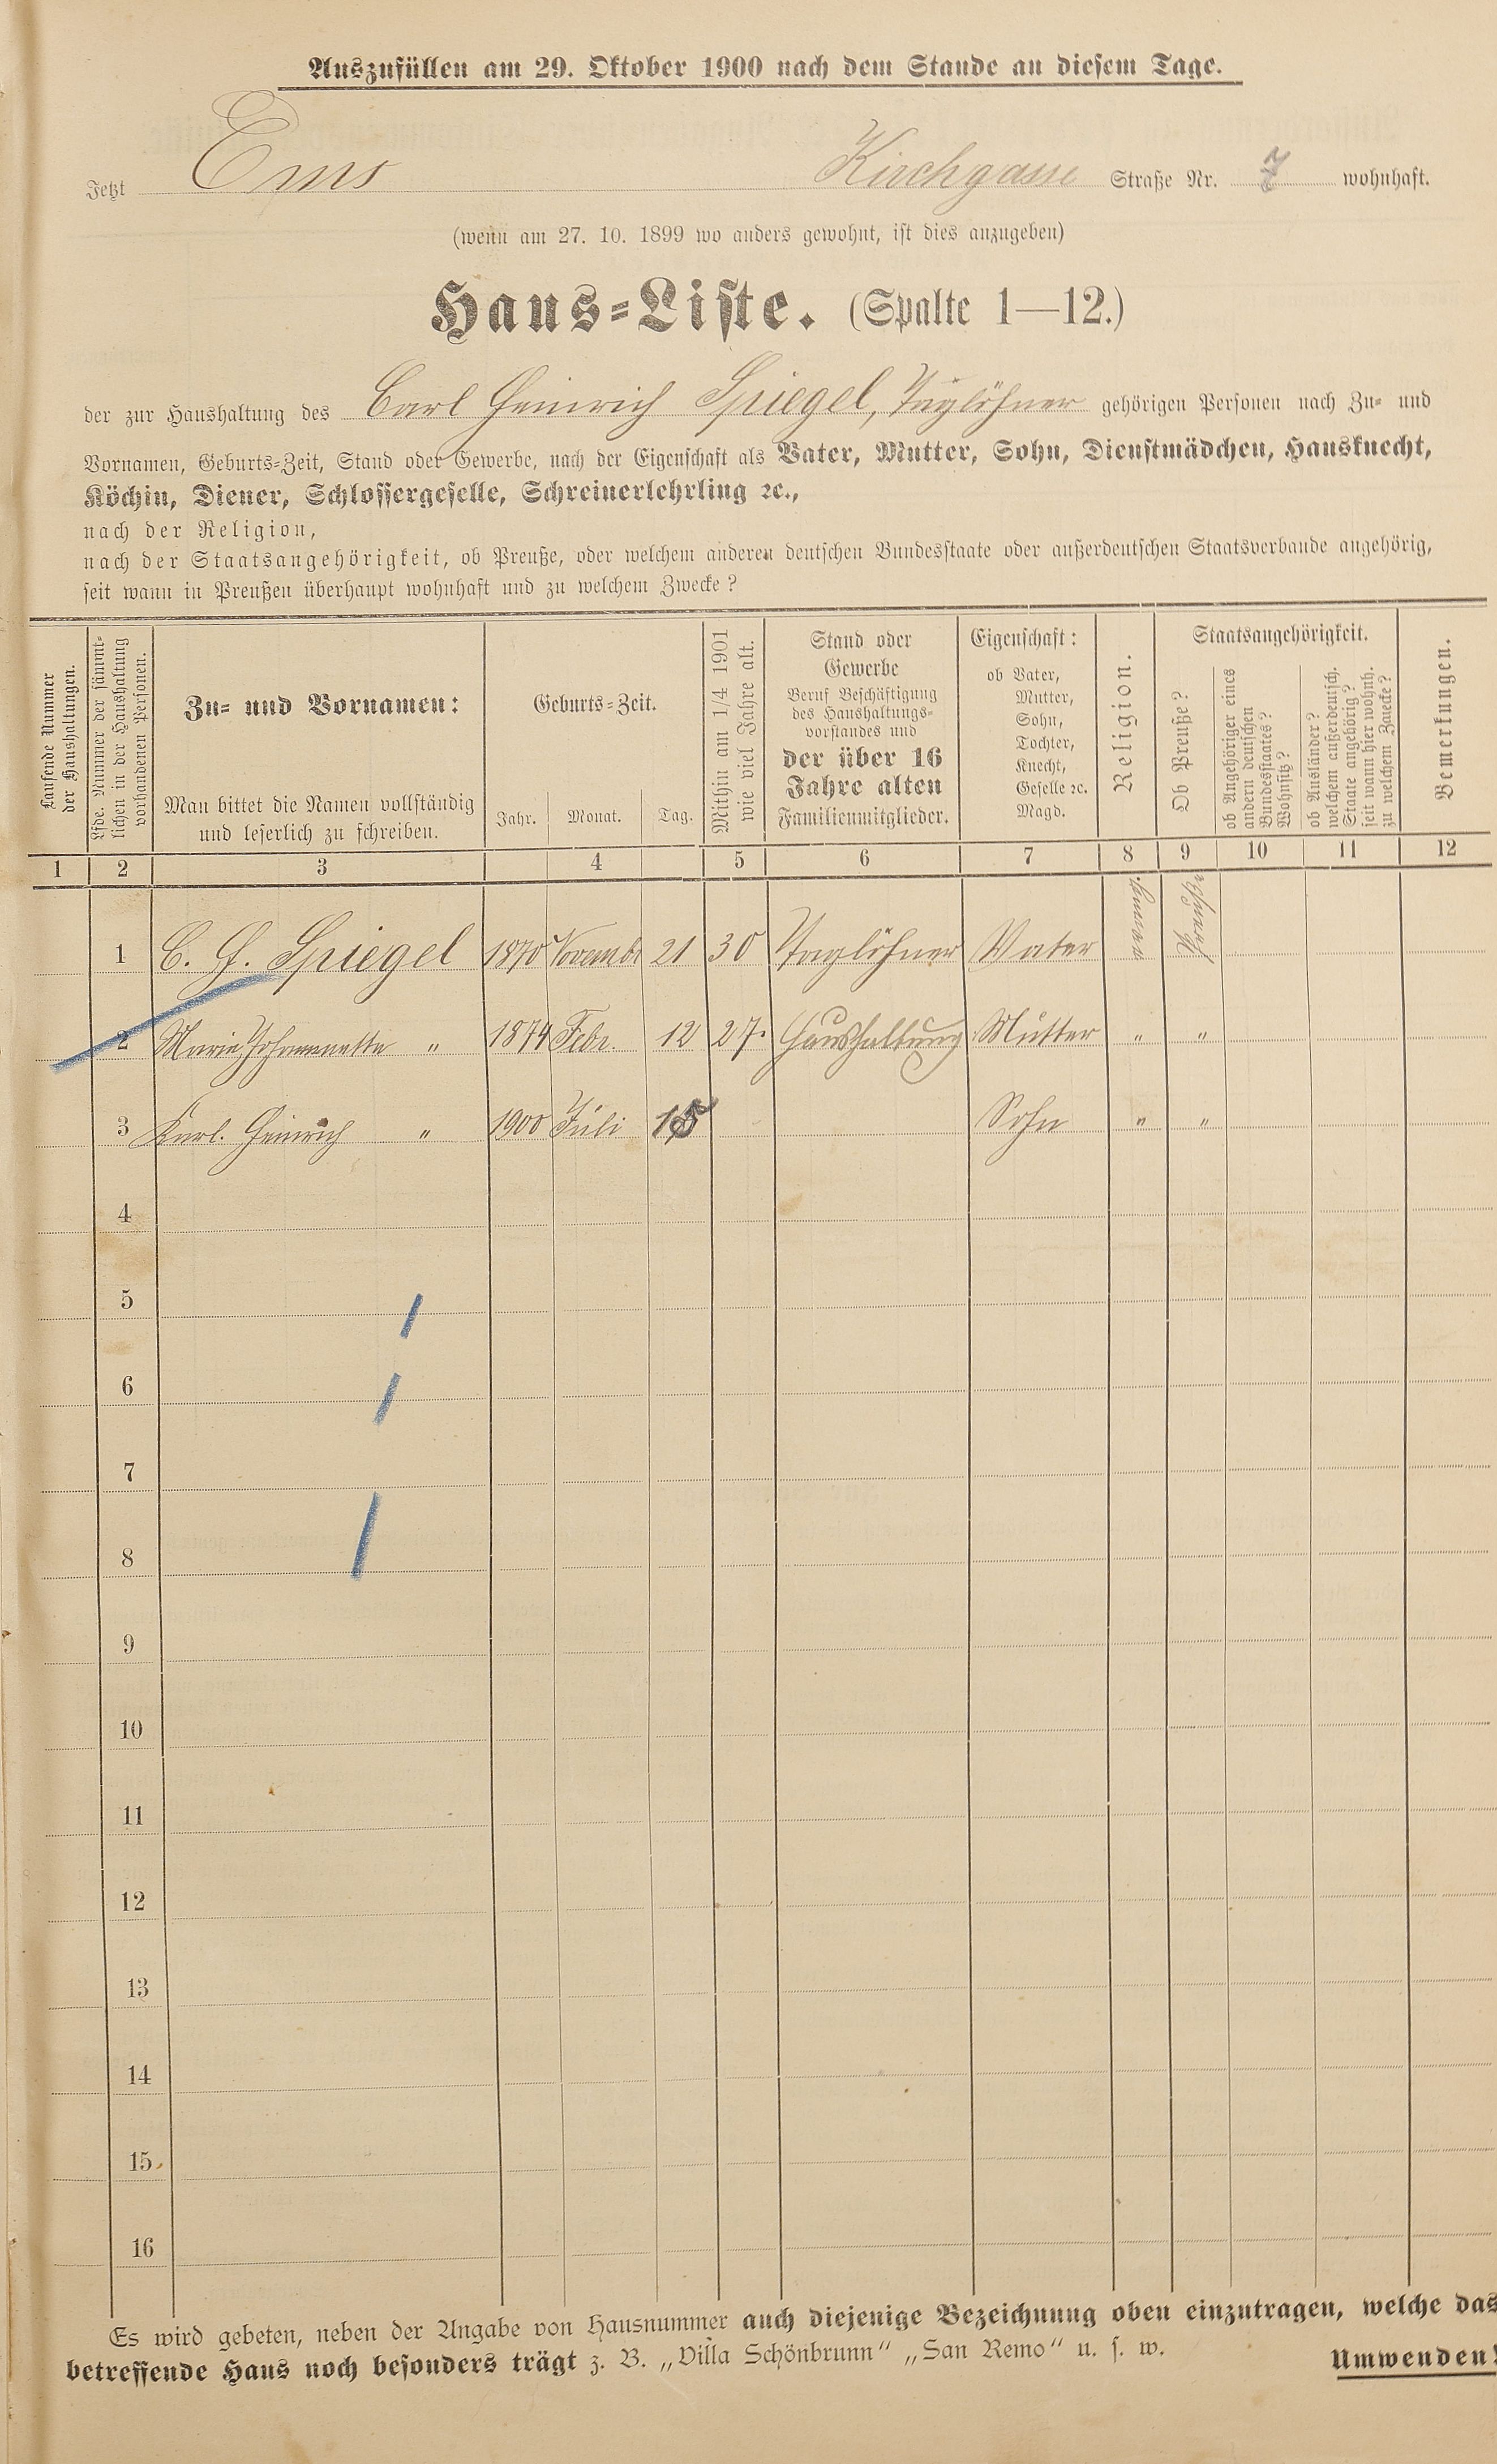 Auszufüllen am 29. Oktober 1900 nach dem Stande an diesem Tage.
Jetzt Ems Kirchgasse Straße Nr. 7 wohnhaft.
(wenn am 27. 10. 1899 wo anders gewohnt, ist dies anzugeben)
Haus=Liste. (Spalte 1—12.)
der zur Haushaltung des Carl Heinrich Spiegel, Taglöhner gehörigen Personen nach Zu= und
Vornamen, Geburts=Zeit, Stand oder Gewerbe, nach der Eigenschaft als Vater, Mutter, Sohn, Dienstmädchen, Hausknecht,
Köchin, Diener, Schlossergeselle, Schreinerlehrling ꝛc.,
nach der Religion,
nach der Staatsangehörigkeit, ob Preuße, oder welchem anderen deutschen Bundesstaate oder außerdeutschen Staatsverbande angehörig,
seit wann in Preußen überhaupt wohnhaft und zu welchem Zwecke?
Laufende Nummer
der Haushaltungen.
Lfde. Nummer der sämmt-
lichen in der Haushaltung
vorhandenen Personen.
Zu= und Vornamen:
Man bittet die Namen vollständig
und leserlich zu schreiben.
Geburts=Zeit.
Jahr. Monat. Tag.
Mithin am 1/4 1901
wie viel Jahre alt.
Stand oder
Gewerbe
Beruf Beschäftigung
des Haushaltungs=
vorstandes und
der über 16
Jahre alten
Familienmitglieder.
Eigenschaft:
ob Vater,
Mutter,
Sohn,
Tochter,
Knecht,
Geselle ꝛc.
Magd.
Religion.
Staatsangehörigkeit.
Ob Preuße?
ob Angehöriger eines
andern deutschen
Bundesstaates?
Wohnsitz?
ob Ausländer?
welchem außerdeutsch.
Staate angehörig?
seit wann hier wohnh.
zu welchem Zwecke?
Bemerkungen.
1 2 3 4 5 6 7 8 9 10 11 12
1 C. H. Spiegel 1870 Novembr 21 30 Taglöhner Vater
2 Marie Johannette " 1874 Febr. 12 27. Haushaltung Mutter " "
3 Karl. Heinrich " 1900 Juli 15 Sohn " "
4
5
6
7
8
9
10
11
12
13
14
15
16
Es wird gebeten, neben der Angabe von Hausnummer auch diejenige Bezeichnung oben einzutragen, welche das
betreffende Haus noch besonders trägt z. B. „Villa Schönbrunn“ „San Remo“ u. s. w.
Umwenden!